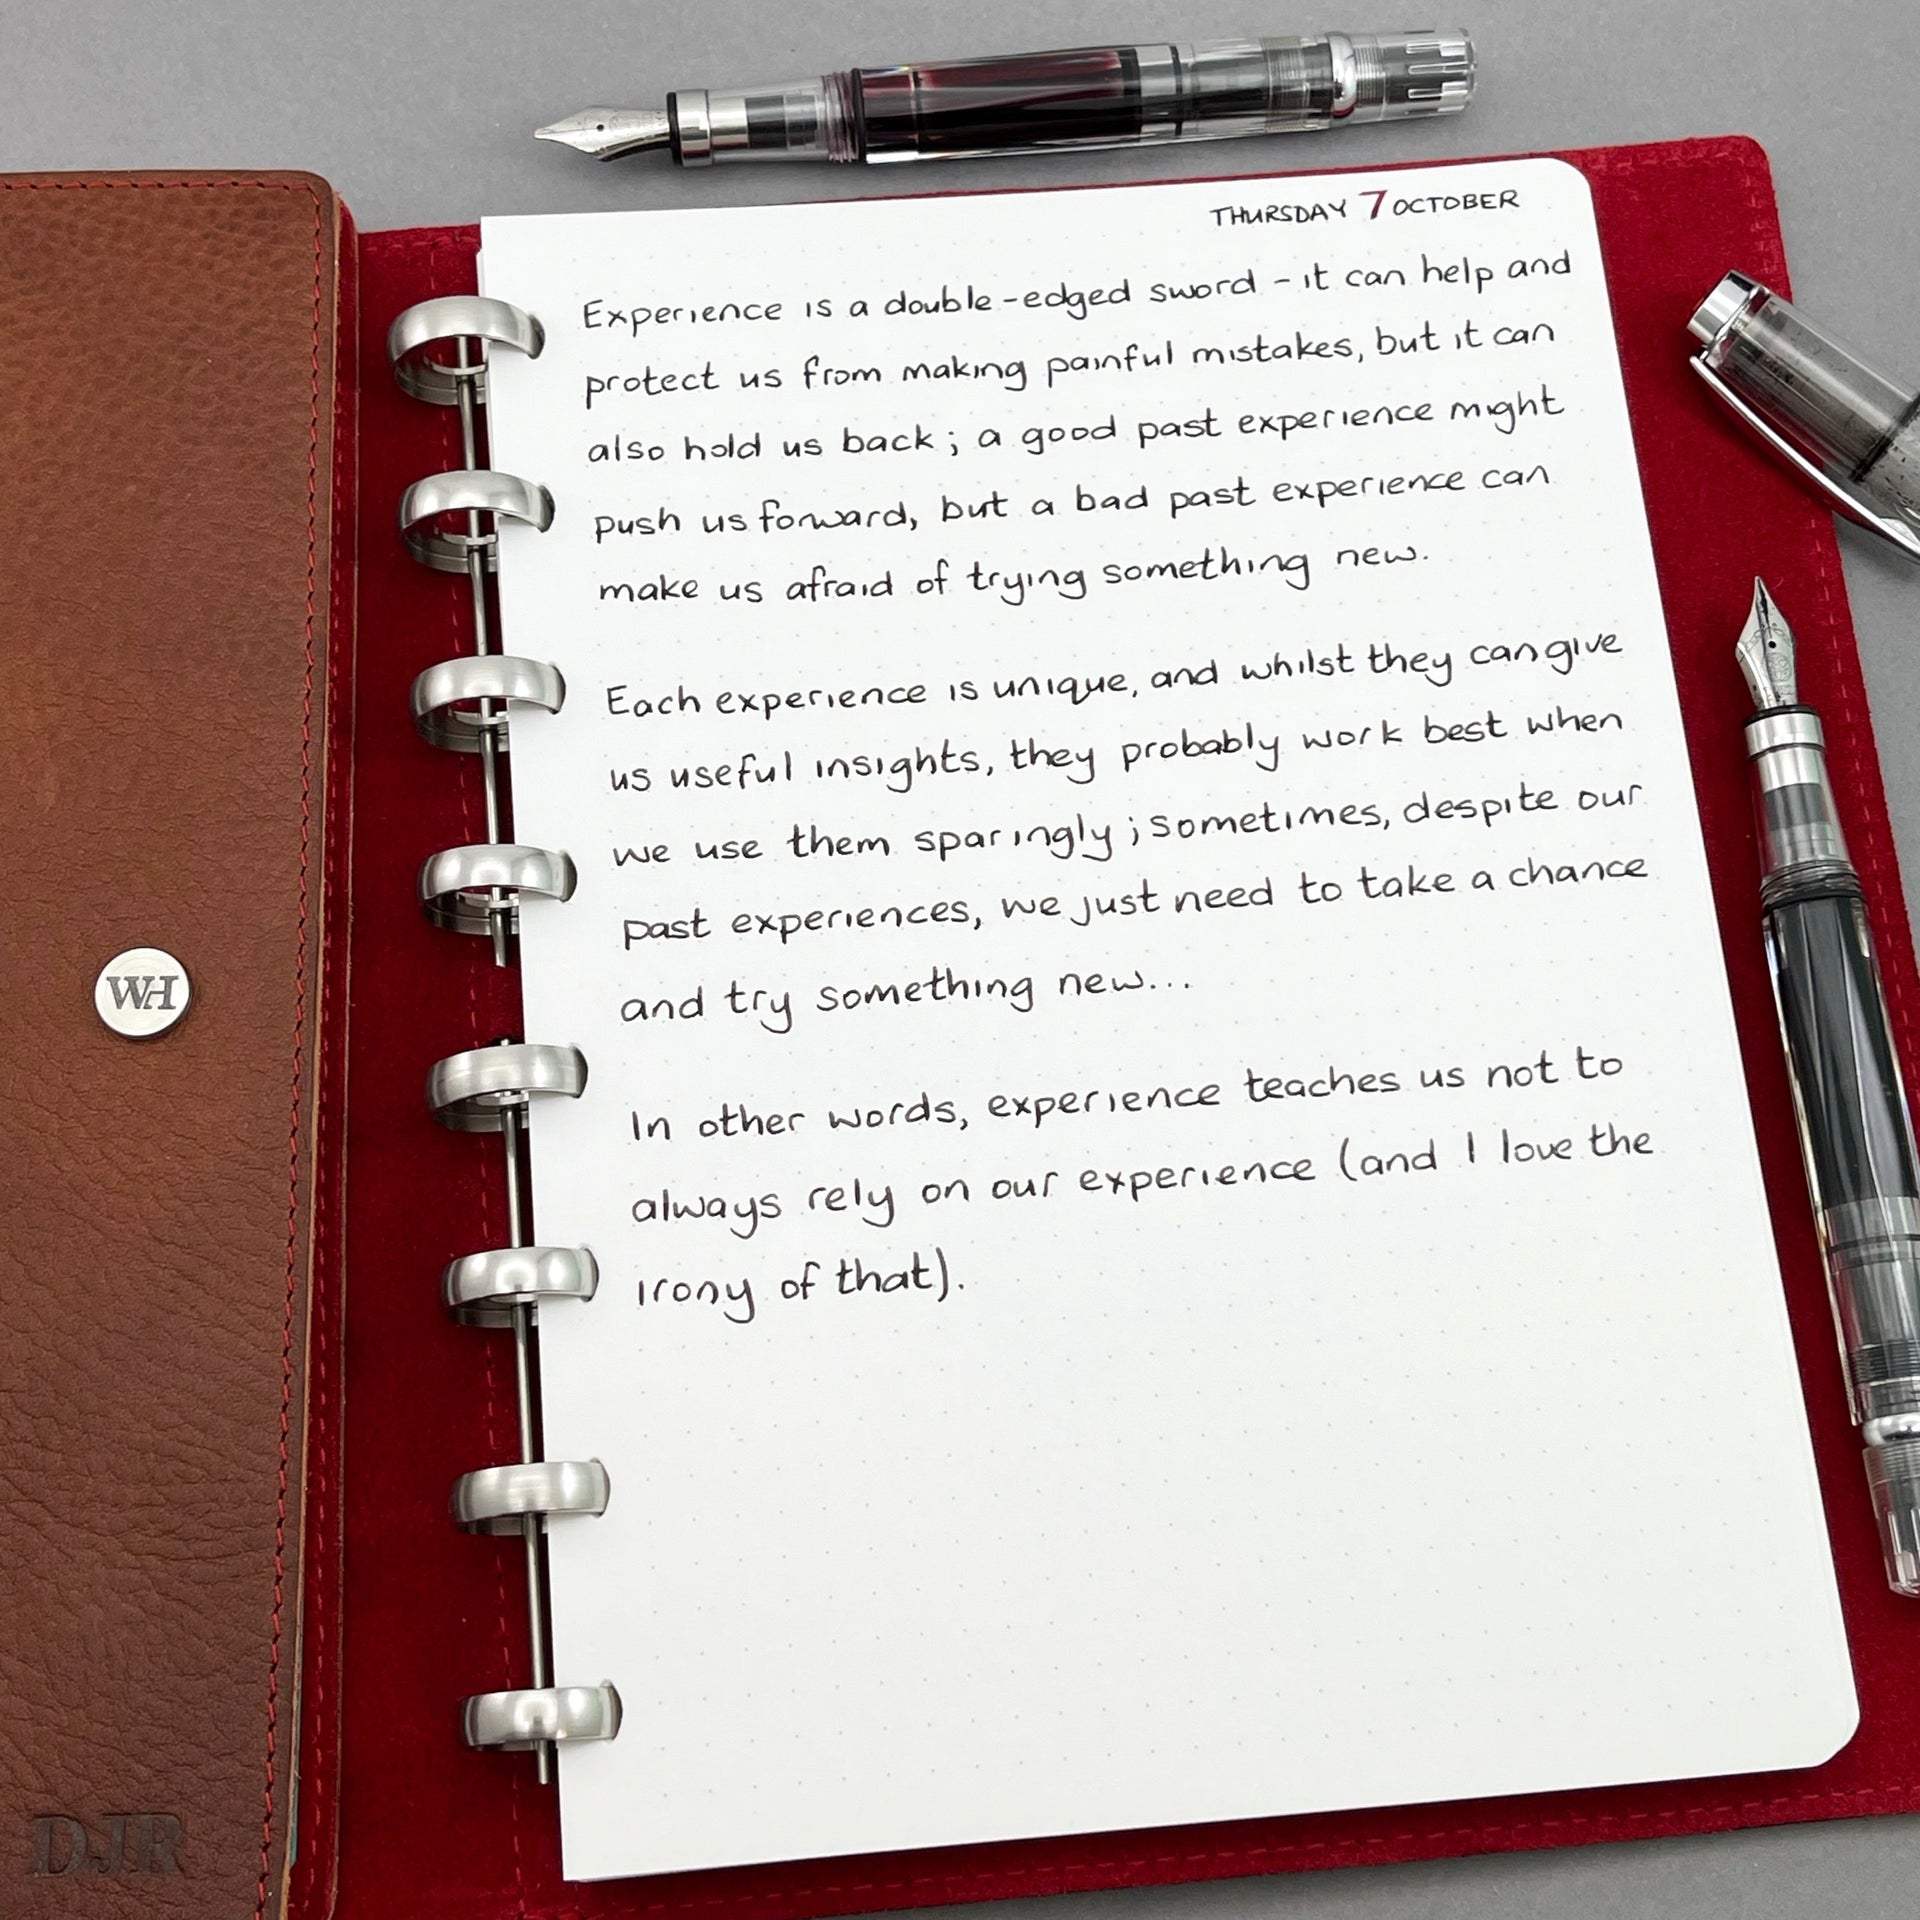 THURSDAY 7 OCTOBER
Experience is a double-edged sword - it can help and
protect us from making painful mistakes, but it can
also hold us back; a good past experience might
push us forward, but a bad past experience can
make us afraid of trying something new.
Each experience is unique, and whilst they can give
us useful insights, they probably work best when
we use them sparingly; sometimes, despite our
past experiences, we just need to take a chance
and try something new...
In other words, experience teaches us not to
always rely on our experience (and I love the
irony of that).
WH
DJR